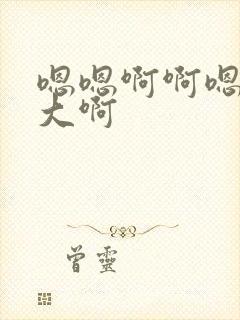 嗯嗯啊啊嗯
大啊
曾靈